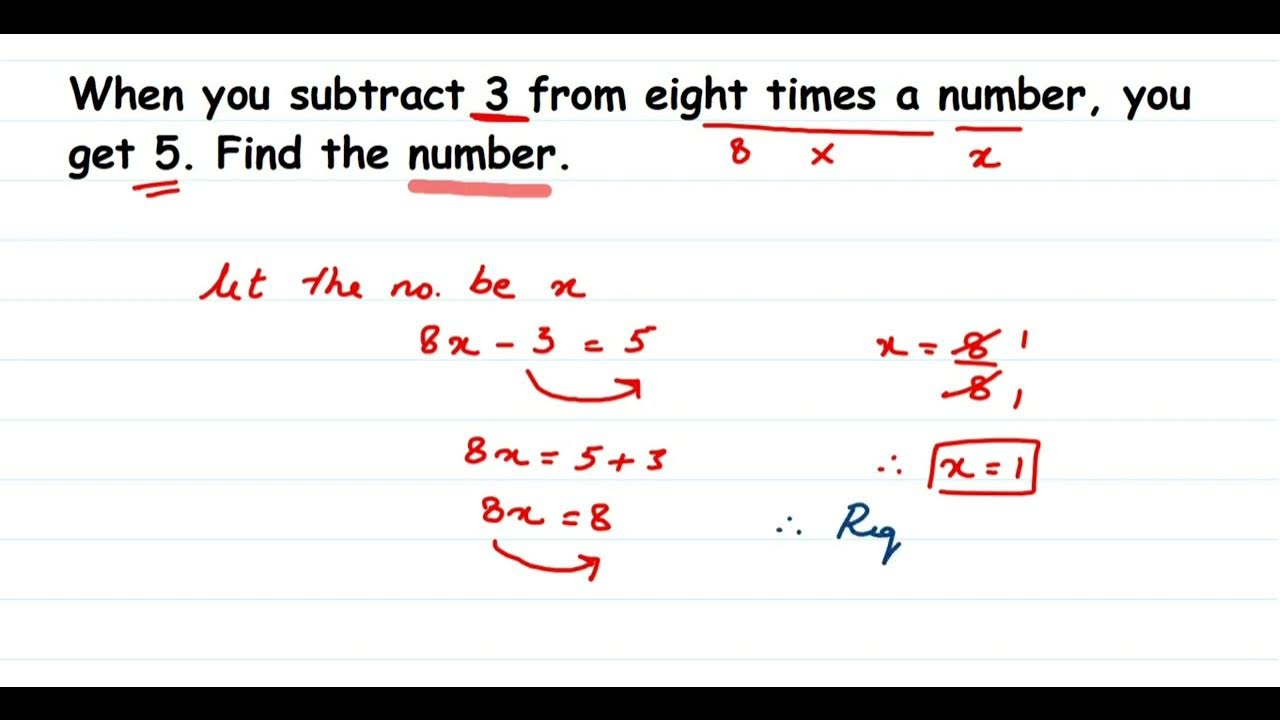 When you subtract 3 from eight times a number, you
get 5. Find the number.
8 × x
let the no. be x
8x - 3 = 5
8x = 5 + 3
8x = 8
x = 8 1
8 1
∴ x = 1
∴ Req